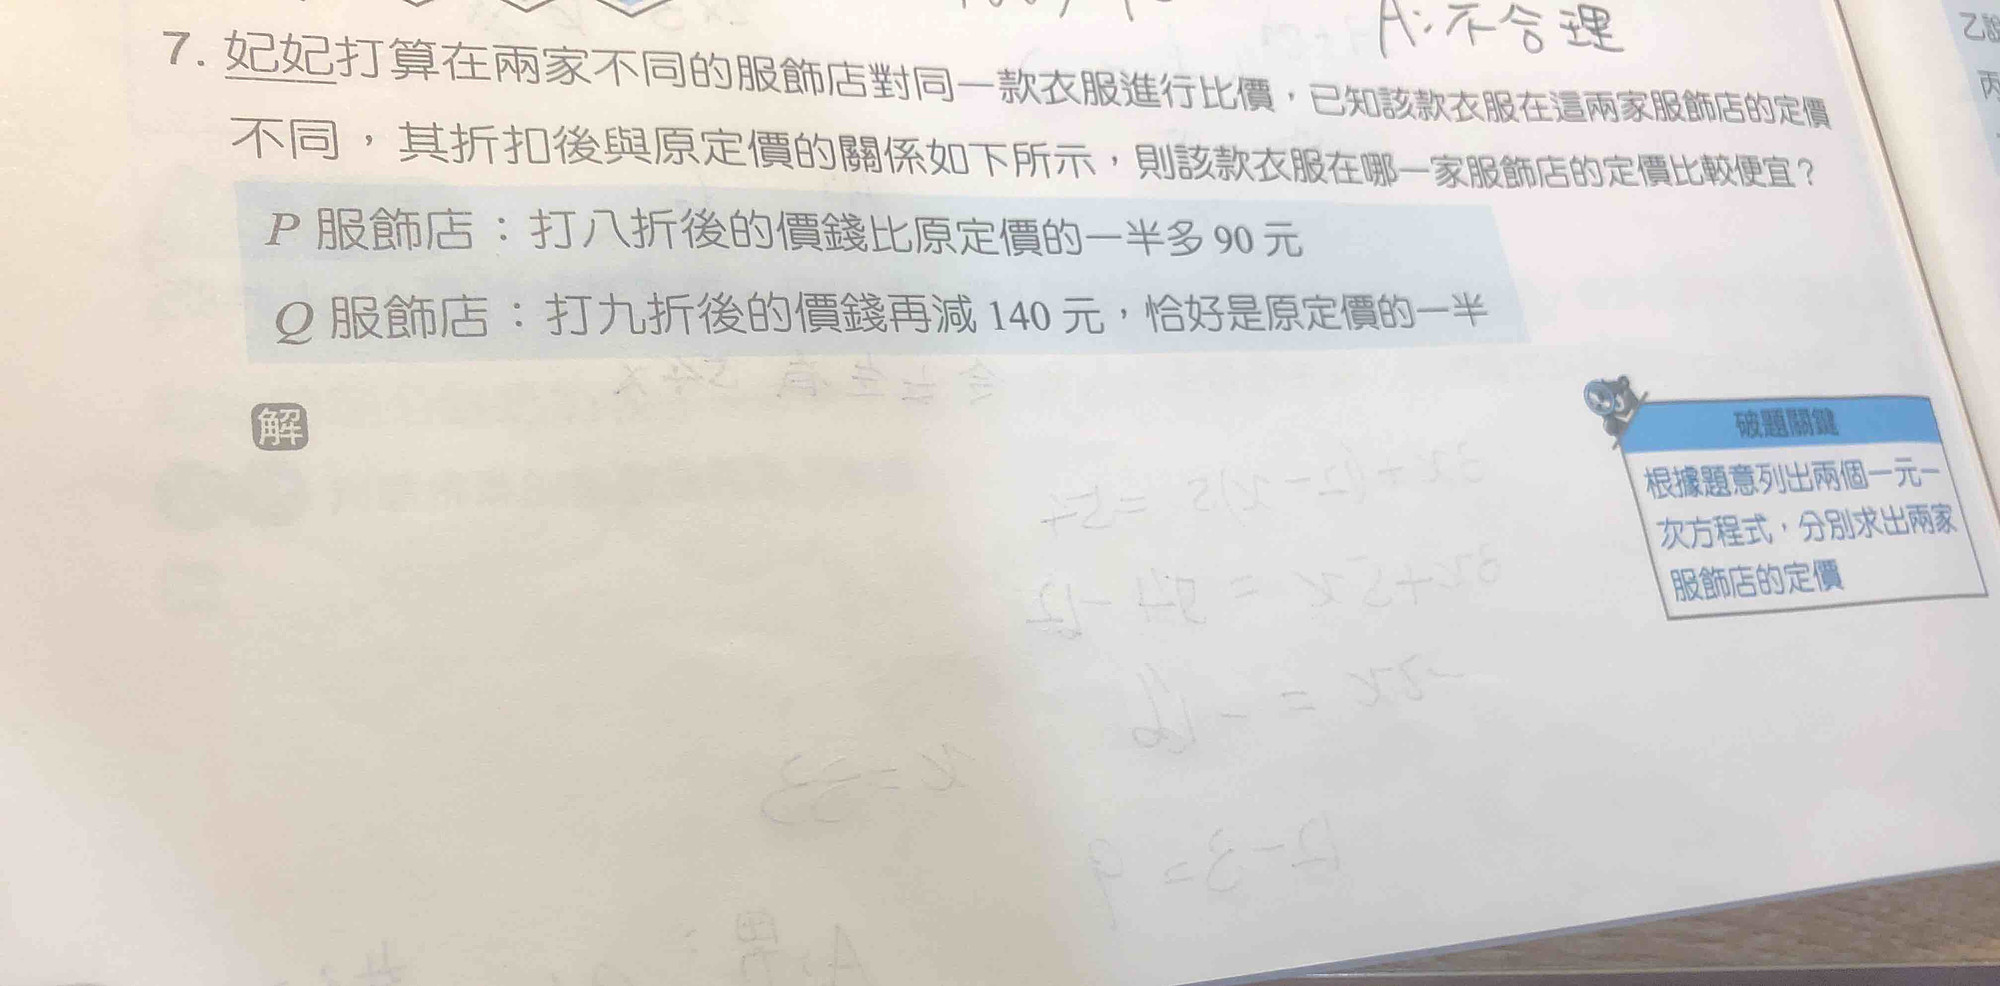 A:不合理
7. 妃妃打算在兩家不同的服飾店對同一款衣服進行比價，已知該款衣服在這兩家服飾店的定價
不同，其折扣後與原定價的關係如下所示，則該款衣服在哪一家服飾店的定價比較便宜？
P 服飾店：打八折後的價錢比原定價的一半多 90 元
Q 服飾店：打九折後的價錢再減 140 元，恰好是原定價的一半
解
破題關鍵
根據題意列出兩個一元一
次方程式，分別求出兩家
服飾店的定價